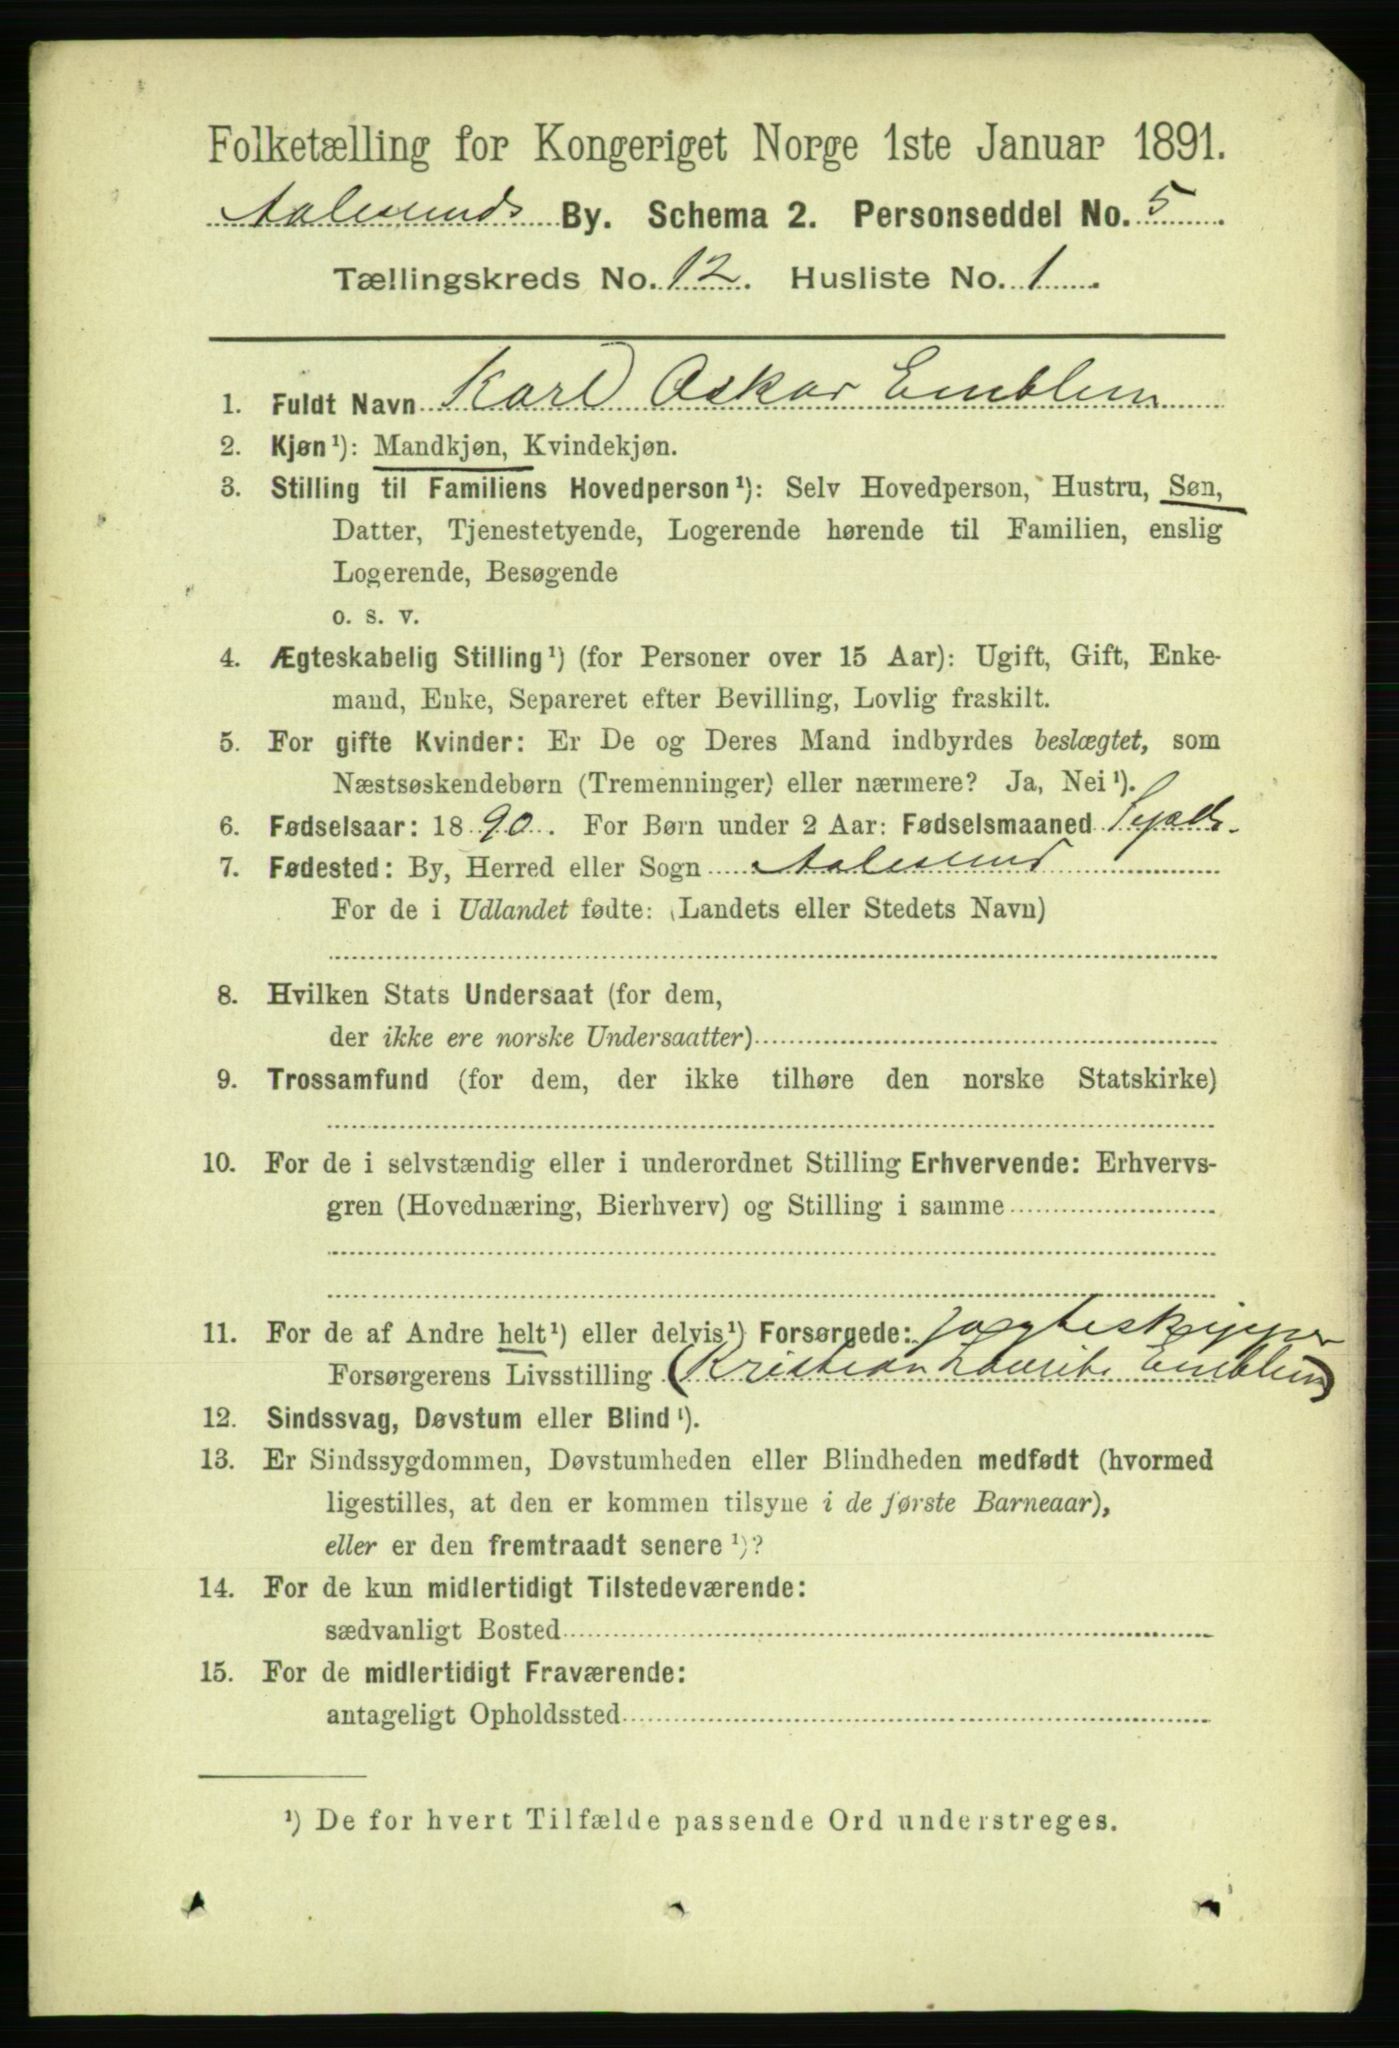 Folketælling for Kongeriget Norge 1ste Januar 1891.
Aalesunds By. Schema 2. Personseddel No. 5.
Tællingskreds No. 12. Husliste No. 1.
1. Fuldt Navn Karl Oskar Emblem
2. Kjøn¹): Mandkjøn, Kvindekjøn.
3. Stilling til Familiens Hovedperson¹): Selv Hovedperson, Hustru, Søn,
Datter, Tjenestetyende, Logerende hørende til Familien, enslig
Logerende, Besøgende
o. s. v.
4. Ægteskabelig Stilling¹) (for Personer over 15 Aar): Ugift, Gift, Enke-
mand, Enke, Separeret efter Bevilling, Lovlig fraskilt.
5. For gifte Kvinder: Er De og Deres Mand indbyrdes beslægtet, som
Næstsøskendebørn (Tremenninger) eller nærmere? Ja, Nei¹).
6. Fødselsaar: 1890. For Børn under 2 Aar: Fødselsmaaned
7. Fødested: By, Herred eller Sogn Aalesund
For de i Udlandet fødte: (Landets eller Stedets Navn)
8. Hvilken Stats Undersaat (for dem,
der ikke ere norske Undersaatter)
9. Trossamfund (for dem, der ikke tilhøre den norske Statskirke)
10. For de i selvstændig eller i underordnet Stilling Erhvervende: Erhvervs-
gren (Hovednæring, Bierhverv) og Stilling i samme
11. For de af Andre helt¹) eller delvis¹) Forsørgede: Jagteskipper
Forsørgerens Livsstilling (Kristian Laurits Emblem)
12. Sindssvag, Døvstum eller Blind¹).
13. Er Sindssygdommen, Døvstumheden eller Blindheden medfødt (hvormed
ligestilles, at den er kommen tilsyne i de første Barneaar),
eller er den fremtraadt senere¹)?
14. For de kun midlertidigt Tilstedeværende:
sædvanligt Bosted
15. For de midlertidigt Fraværende:
antageligt Opholdssted
¹) De for hvert Tilfælde passende Ord understreges.